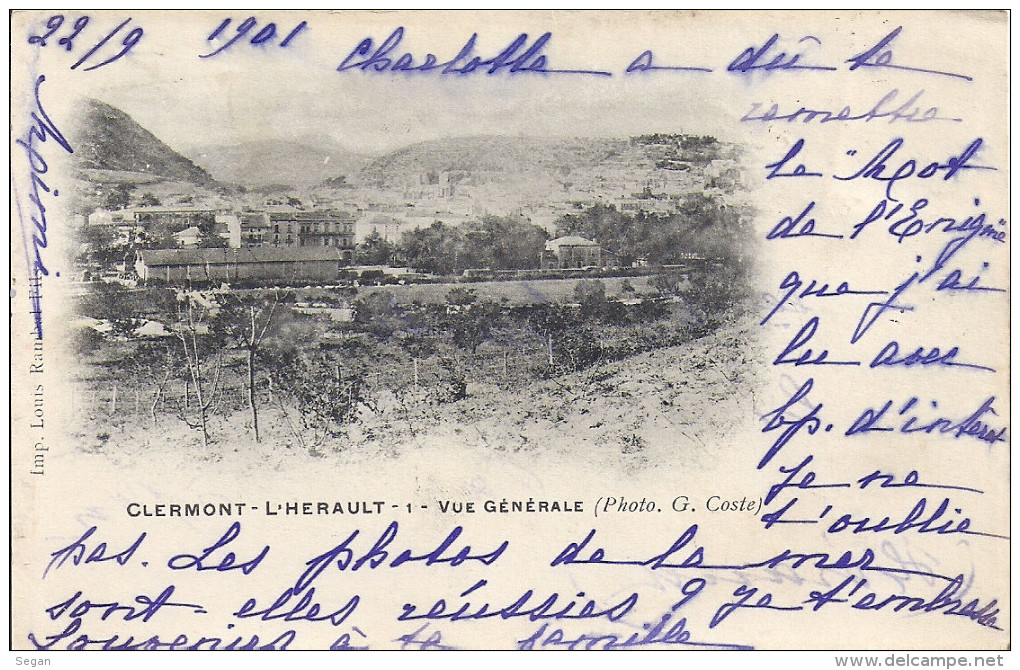 22/9 1901
Charlotte a dû te
remettre
le
de l'Énigme
que j'ai
lu avec
bp. d'intérêt
Je ne
t'oublie
pas. Les photos de la mer
sont-elles réussies ? Je t'embrasse
Souvenirs à ta famille
Imp. Louis
CLERMONT - L'HERAULT - 1 - VUE GÉNÉRALE (Photo. G. Coste)
Segan
www.delcampe.net